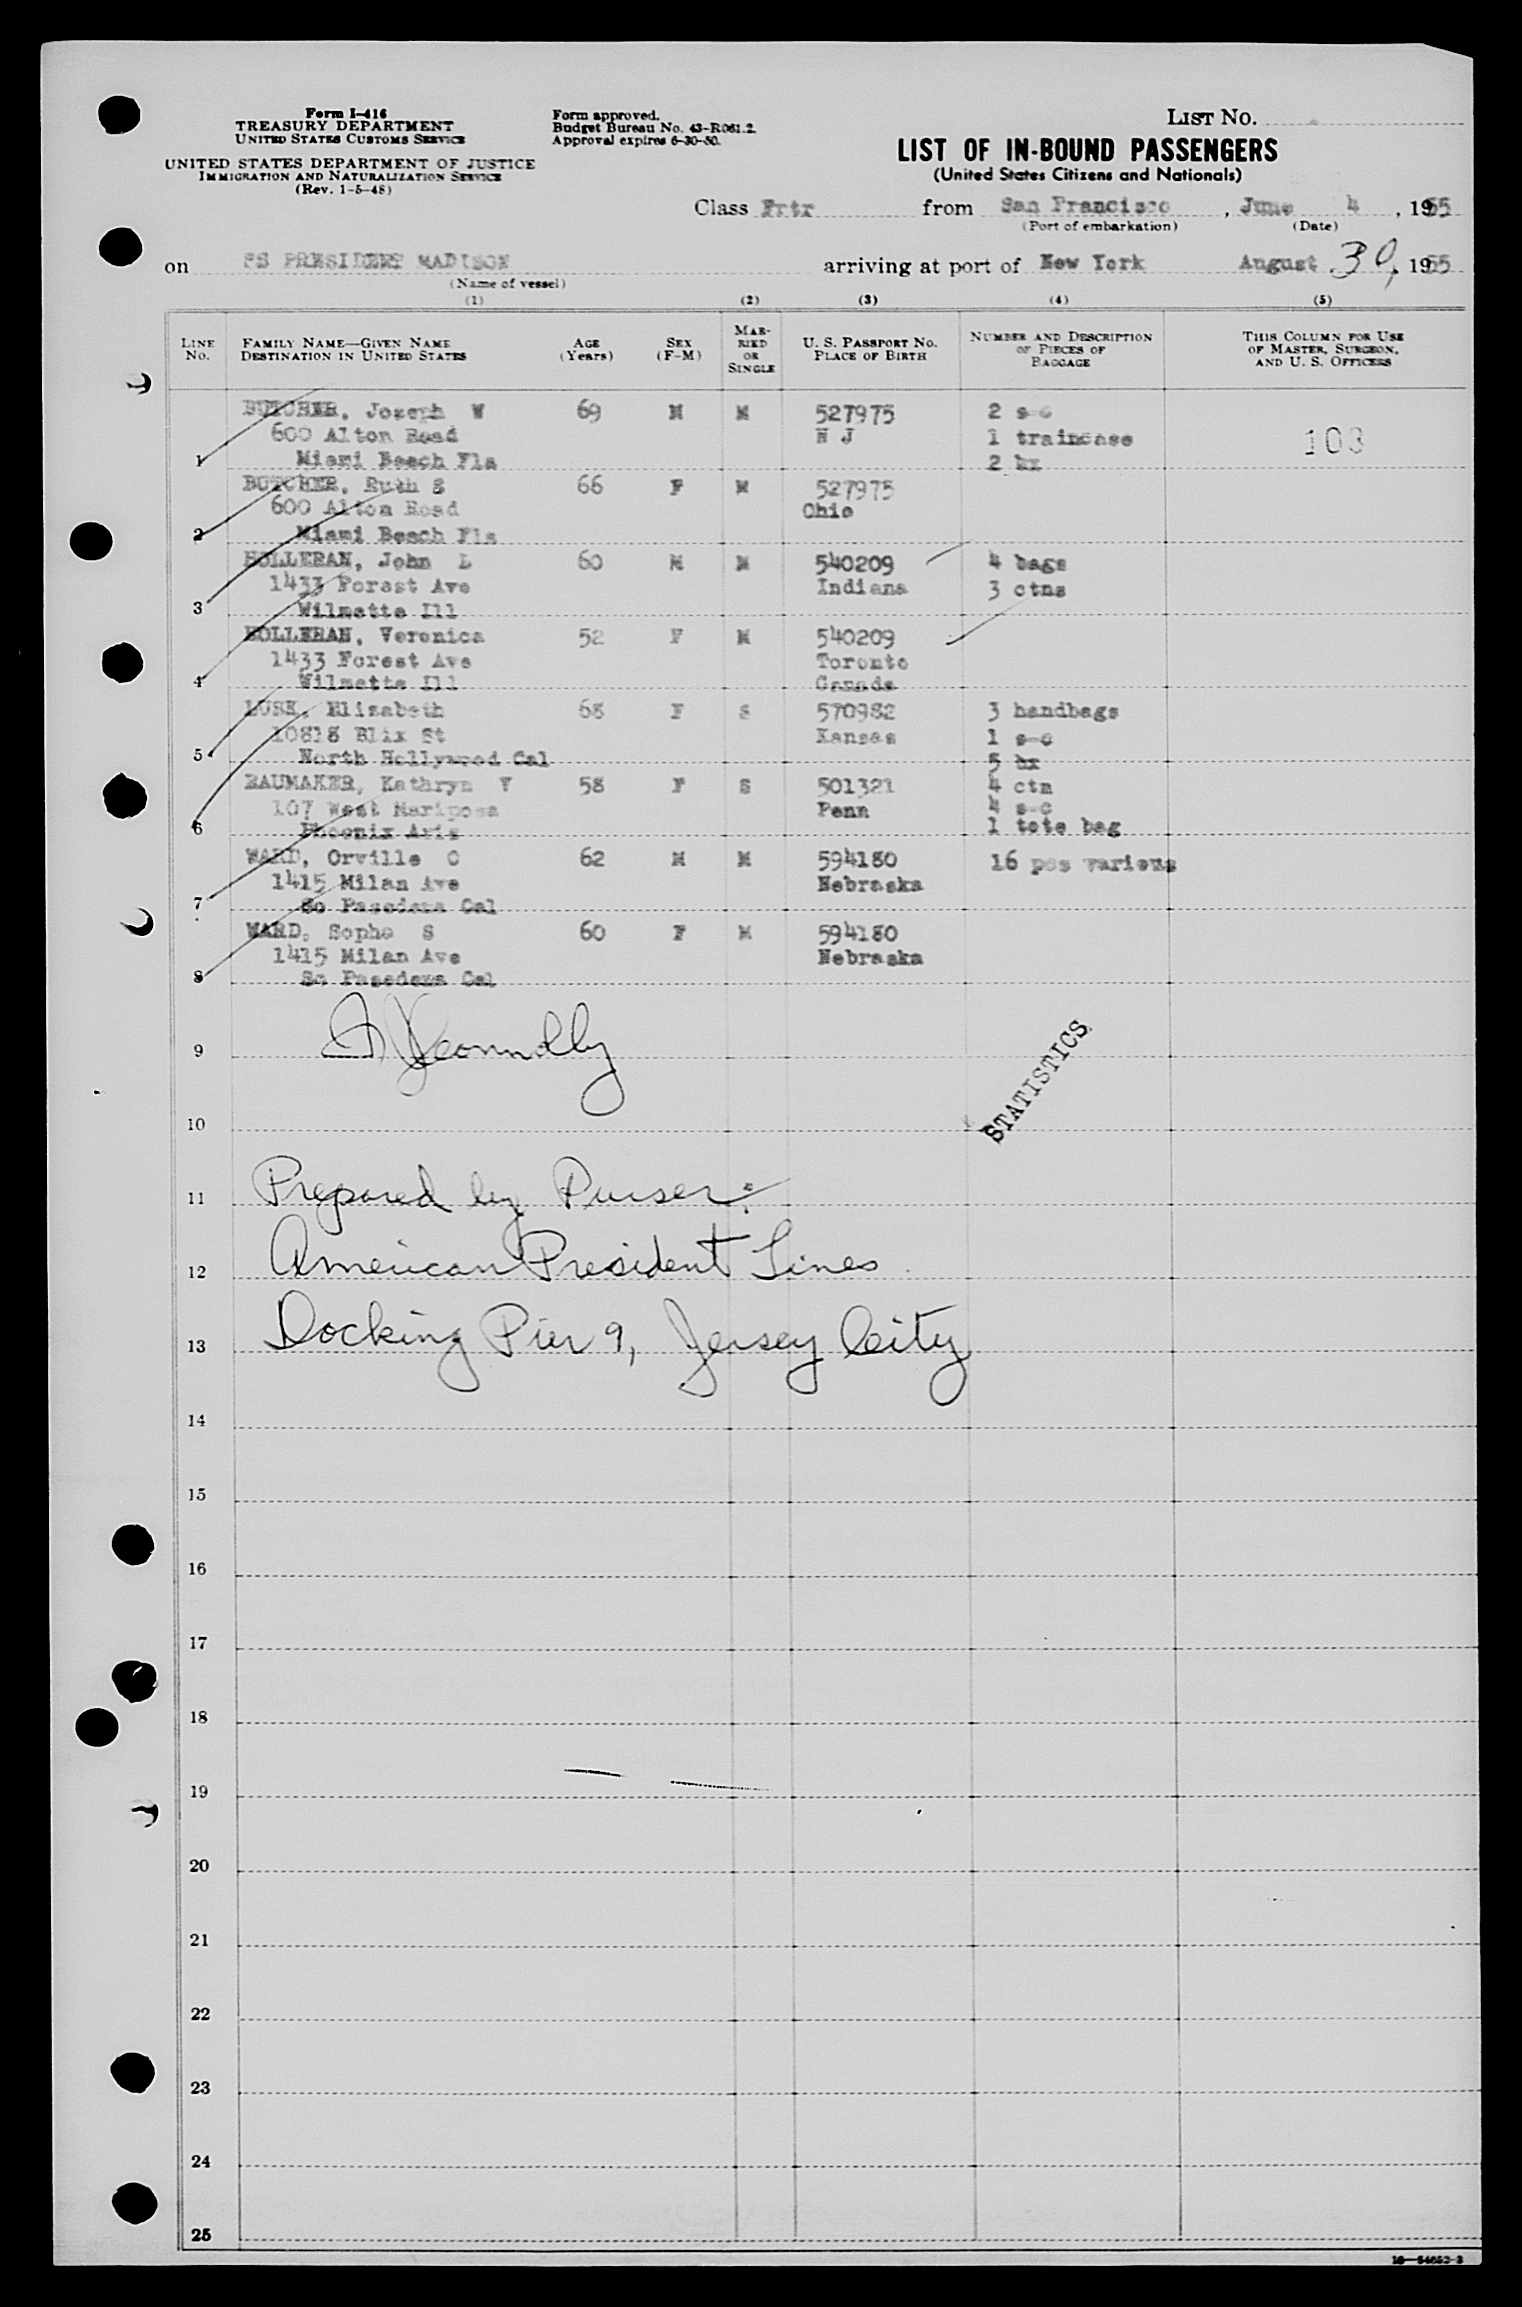 Form I-416
TREASURY DEPARTMENT
UNITED STATES CUSTOMS SERVICE
UNITED STATES DEPARTMENT OF JUSTICE
IMMIGRATION AND NATURALIZATION SERVICE
(Rev. 1-5-48)
Form approved.
Budget Bureau No. 43-R061.2.
Approval expires 6-30-50.
LIST No.
LIST OF IN-BOUND PASSENGERS
(United States Citizens and Nationals)
Class Frtr from San Francisco, June 4, 1955
(Port of embarkation) (Date)
on SS PRESIDENT MADISON arriving at port of New York August 30, 1955
(Name of vessel)
(1) (2) (3) (4) (5)
LINE No. FAMILY NAME—GIVEN NAME DESTINATION IN UNITED STATES AGE (Years) SEX (F-M) MARRIED OR SINGLE U. S. PASSPORT No. PLACE OF BIRTH NUMBER AND DESCRIPTION OF PIECES OF BAGGAGE THIS COLUMN FOR USE OF MASTER, SURGEON, AND U. S. OFFICERS
BUTCHER, Joseph W 69 M M 527975 2 s-c
600 Alton Road N J 1 traincase 103
1 Miami Beech Fla 2 bx
BUTCHER, Ruth S 66 F M 527975
600 Alton Road Ohio
2 Miami Beach Fla
HOLLERAN, John L 60 M M 540209 4 bags
1433 Forest Ave Indiana 3 ctns
3 Wilmette Ill
HOLLERAN, Veronica 52 F M 540209
1433 Forest Ave Toronto
4 Wilmette Ill Canada
LUSK, Elizabeth 68 F S 570982 3 handbags
10818 Blix St Kansas 1 s-c
5 North Hollywood Cal 5 bx
BAUMAKER, Kathryn V 58 F S 501321 4 ctn
107 West Mariposa Penn 4 s-c
6 Phoenix Aris 1 tote bag
WARD, Orville C 62 M M 594180 16 pcs various
1415 Milan Ave Nebraska
7 So Pasedena Cal
WARD, Sopha S 60 F M 594180
1415 Milan Ave Nebraska
8 So Pasedena Cal
9
STATISTICS
10
11 Prepared by Purser:
12 American President Lines
13 Docking Pier 9, Jersey City
14
15
16
17
18
19
20
21
22
23
24
25